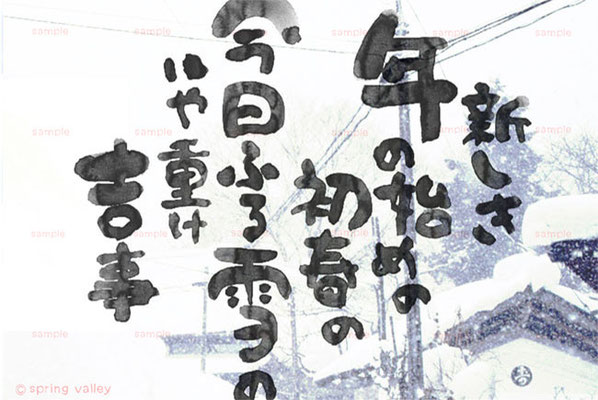 新しき
年の始めの
初春の
今日ふる雪の
いや重け
吉事
sample sample sample sample sample sample
sample sample sample sample sample sample
sample sample sample sample sample sample
sample sample sample sample sample sample
© spring valley